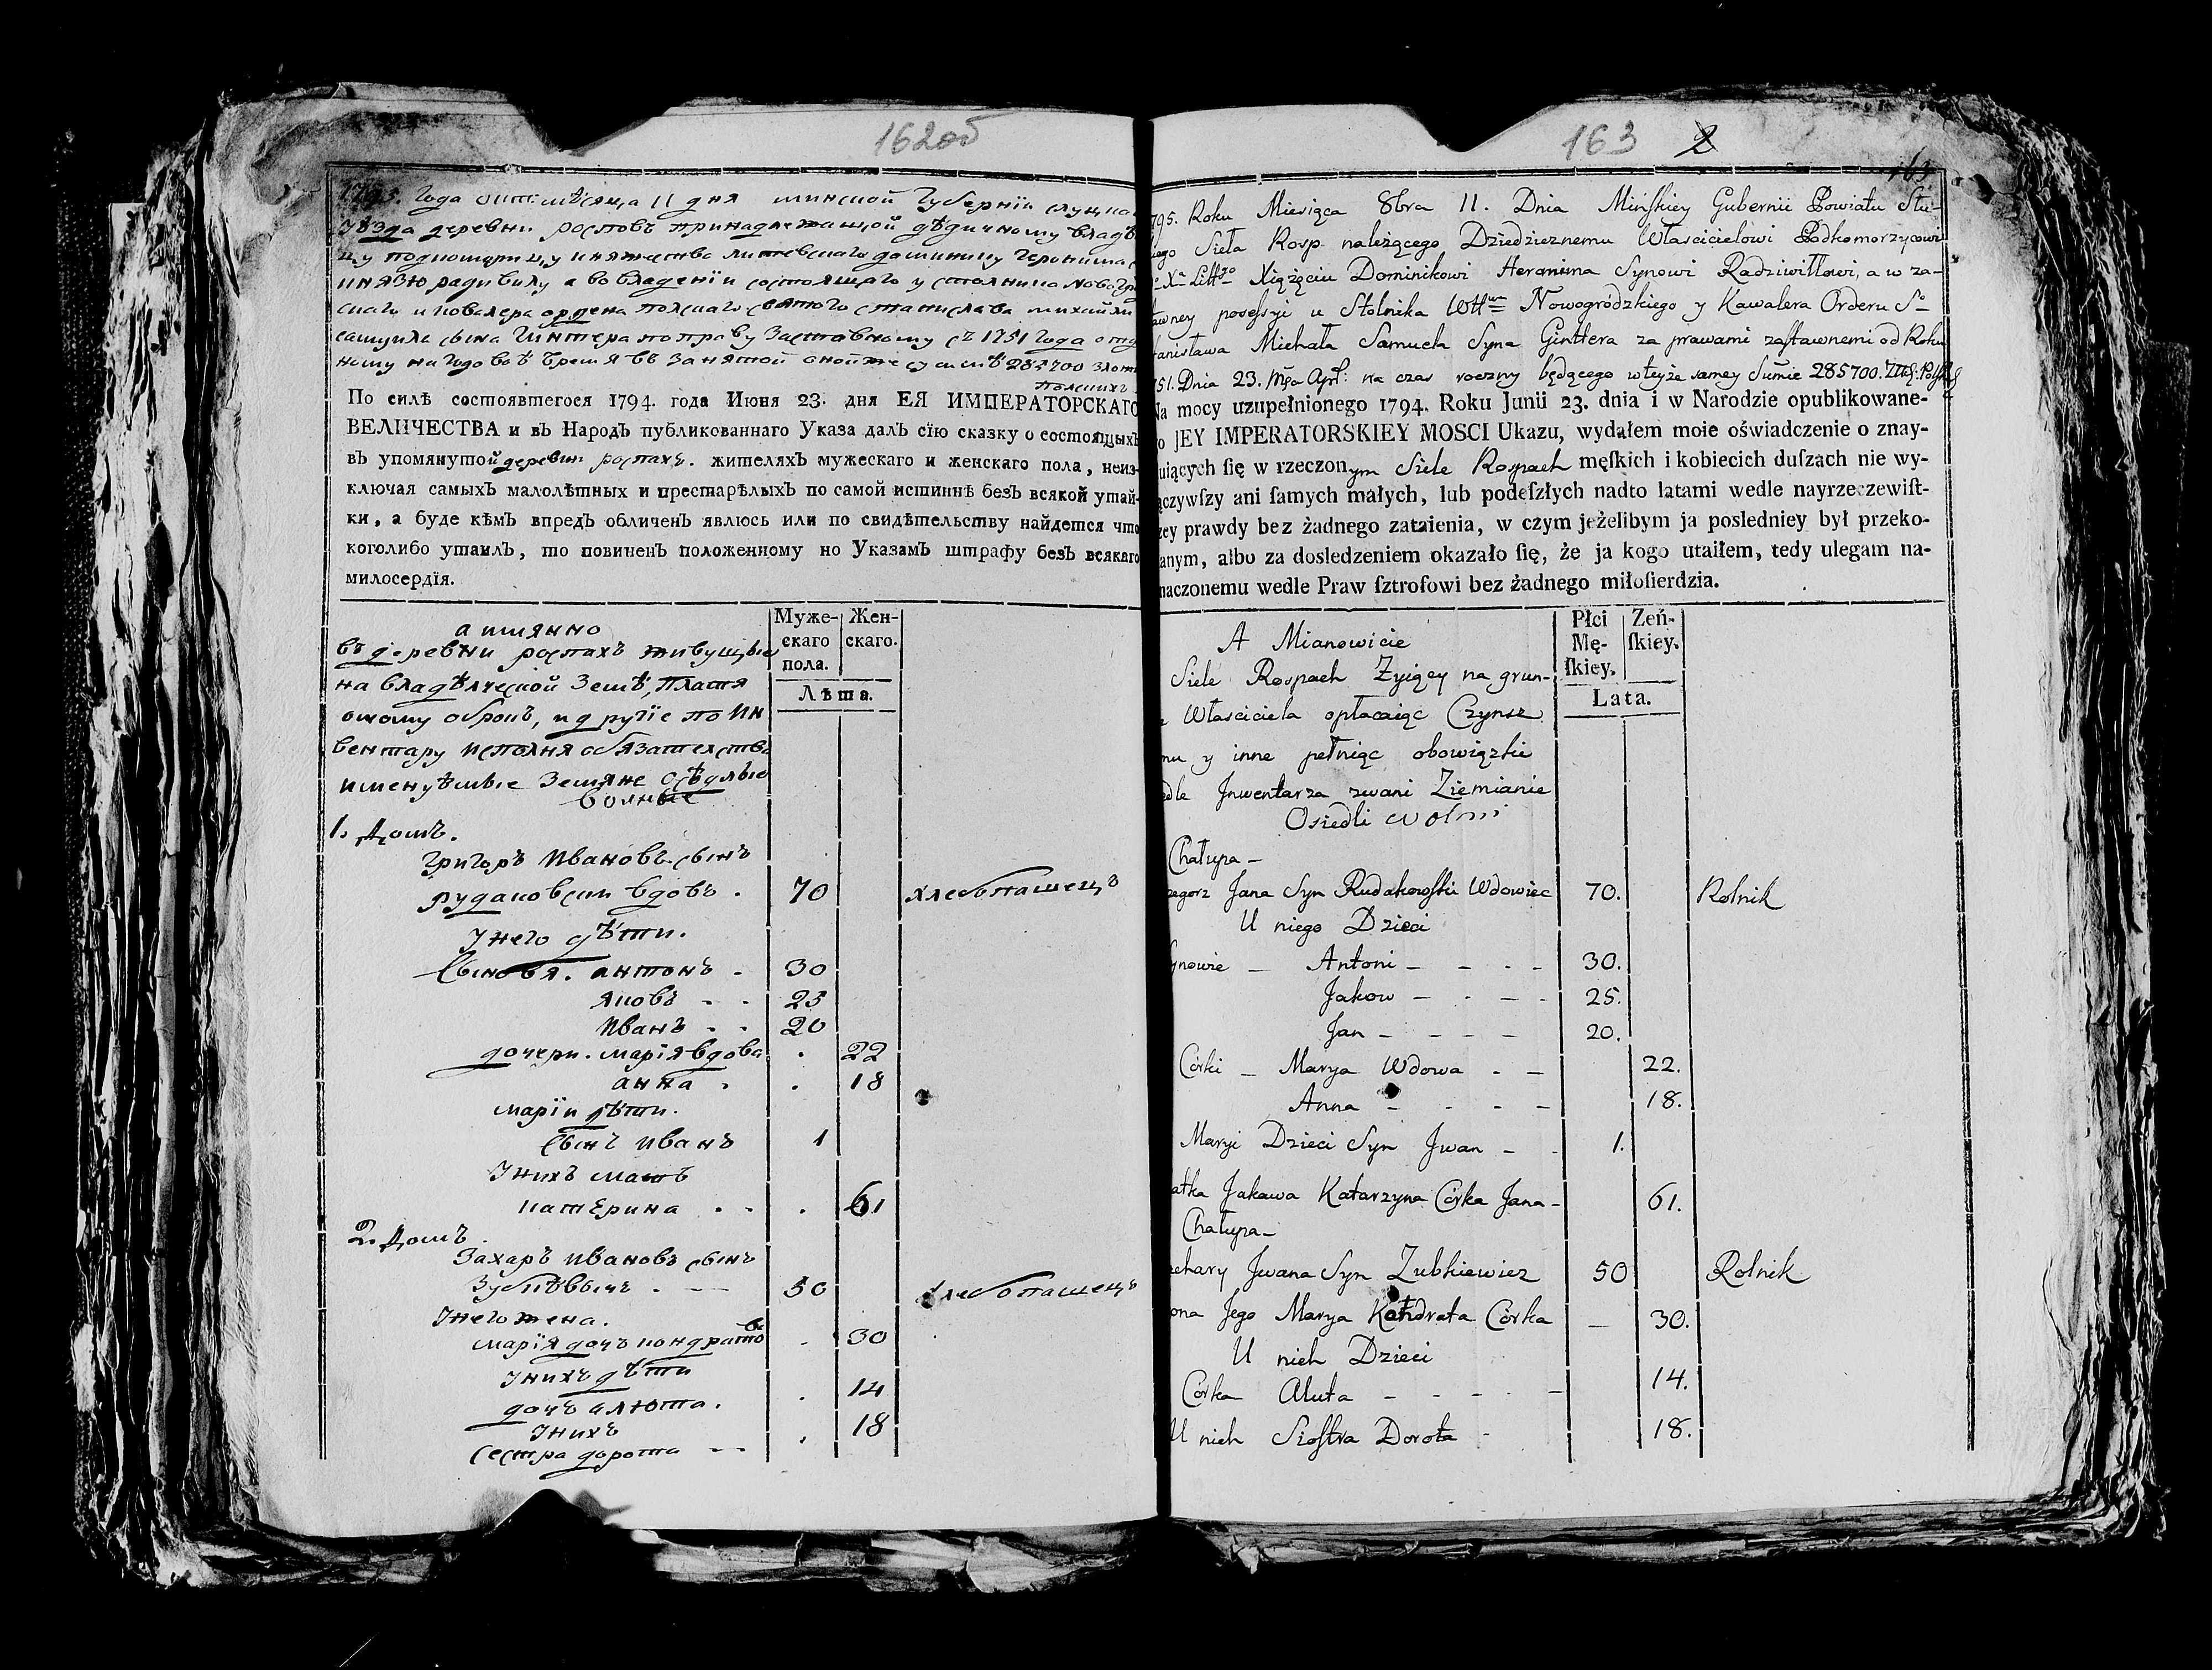 162об
1795. Года октъ мѣсяца 11 дня минской Губернїи слуцкаго
уѣзда деревни росповъ принадлежащой дѣдичному владѣ
цу подкоморицу княжества литевскаго доминику Геронима
князю радивилу а во владенїи состоящаго у столника новогру
скаго и кавалера ордена полскаго святого станислава михайли
самуила сына Гинтера по праву заставному съ 1751 года
ному на годовъ время въ занятой оной же суммѣ 285700 злот
полских
По силѣ состоявшегося 1794. года Июня 23. дня ЕЯ ИМПЕРАТОРСКАГО
ВЕЛИЧЕСТВА и въ Народъ публикованнаго Указа далъ сїю сказку о состоящыхъ
въ упомянутой деревни роспахъ. жителяхъ мужескаго и женскаго пола, неиз-
ключая самыхъ малолѣтныхъ и престарѣлыхъ по самой истиннѣ безъ всякой утай-
ки, а буде кѣмъ впредъ обличенъ явлюсь или по свидѣтельству найдется что
коголибо утаилъ, то повиненъ положенному по Указамъ штрафу безъ всякаго
милосердїя.
Муже-
скаго
пола.
Жен-
скаго.
Лѣта.
а имянно
въ деревни роспахъ живущые
на владѣлческой землѣ, платя
оному оброкъ, и другїе по ин
вентару исполня обязателства
именуемые Земяне осѣдлые
волные
1. Домъ.
Григоръ Ивановъ сынъ
рудаковски вдовъ. 70 хлебопашецъ
у него дѣти.
Сыновя. антонъ 30
яковъ 25
Иванъ 20
дочери. марїя вдова 22
анна 18
марїи дѣти.
Сынъ иванъ 1
у нихъ мать
катерина 61
2. Домъ
Захаръ ивановъ сынъ
Зубкѣвичъ 50 хлебопашецъ
у него жена.
марїя дочъ кондратова 30
у нихъ дѣти
дочъ алюта. 14
у нихъ
сестра дорота 18
163 2
163
795. Roku Miesiąca 8bra 11. Dnia Minſkiey Gubernii Powiatu Słu-
iego Sieła Rosp. należącego Dziedzicznemu Włascicielowi Podkomorzycowi
Xa Littgo Xiążęciu Dominikowi Heronima Synowi Radziwiłłowi, a w za-
awney posessyi u Stolnika Wttwa Nowogrodzkiego y Kawalera Orderu So
tanisława Michała Samuela Syna Ginttera za prawami zaſtawnemi od Roku
751. Dnia 23. Mca Apr: na czas roczny będącego w teyże samey Summie 285700. Zttch: Polſkich
Na mocy uzupełnionego 1794. Roku Junii 23. dnia i w Narodzie opublikowane-
o JEY IMPERATORSKIEY MOSCI Ukazu, wydałem moie oświadczenie o znay-
uiących ſię w rzeczonym Siele Rospach męſkich i kobiecich duſzach nie wy-
ączywſzy ani ſamych małych, lub podeſzłych nadto latami wedle nayrzeczewiſt-
zey prawdy bez żadnego zataienia, w czym jeżelibym ja posledniey był przeko-
anym, albo za dosledzeniem okazało ſię, że ja kogo utaiłem, tedy ulegam na-
naczonemu wedle Praw ſztrofowi bez żadnego miłoſierdzia.
Płci
Mę-
ſkiey.
Zeń-
ſkiey.
Lata.
A Mianowicie
Siele Rospach Zyiący na grun-
Własciciela opłacaiąc Czynsz
mu y inne pełniąc obowiązki
edle Jnwentarza zwani Ziemianie
Osiedli wolnii
Chałupa –
zegorz Jana Syn Rudakowſki Wdowiec 70. Rolnik
U niego Dzieci
ynowie – Antoni – 30.
Jakow – 25.
Jan – 20.
Córki – Marya Wdowa – 22.
Anna – 18.
Maryi Dzieci Syn Jwan – 1.
atka Jakawa Katarzyna Córka Jana – 61.
Chałupa –
chary Jwana Syn Zubkiewicz 50 Rolnik
ona Jego Marya Kondrata Córka – 30.
U nich Dzieci
Córka Aluta – 14.
U nich Sioſtra Dorota – 18.